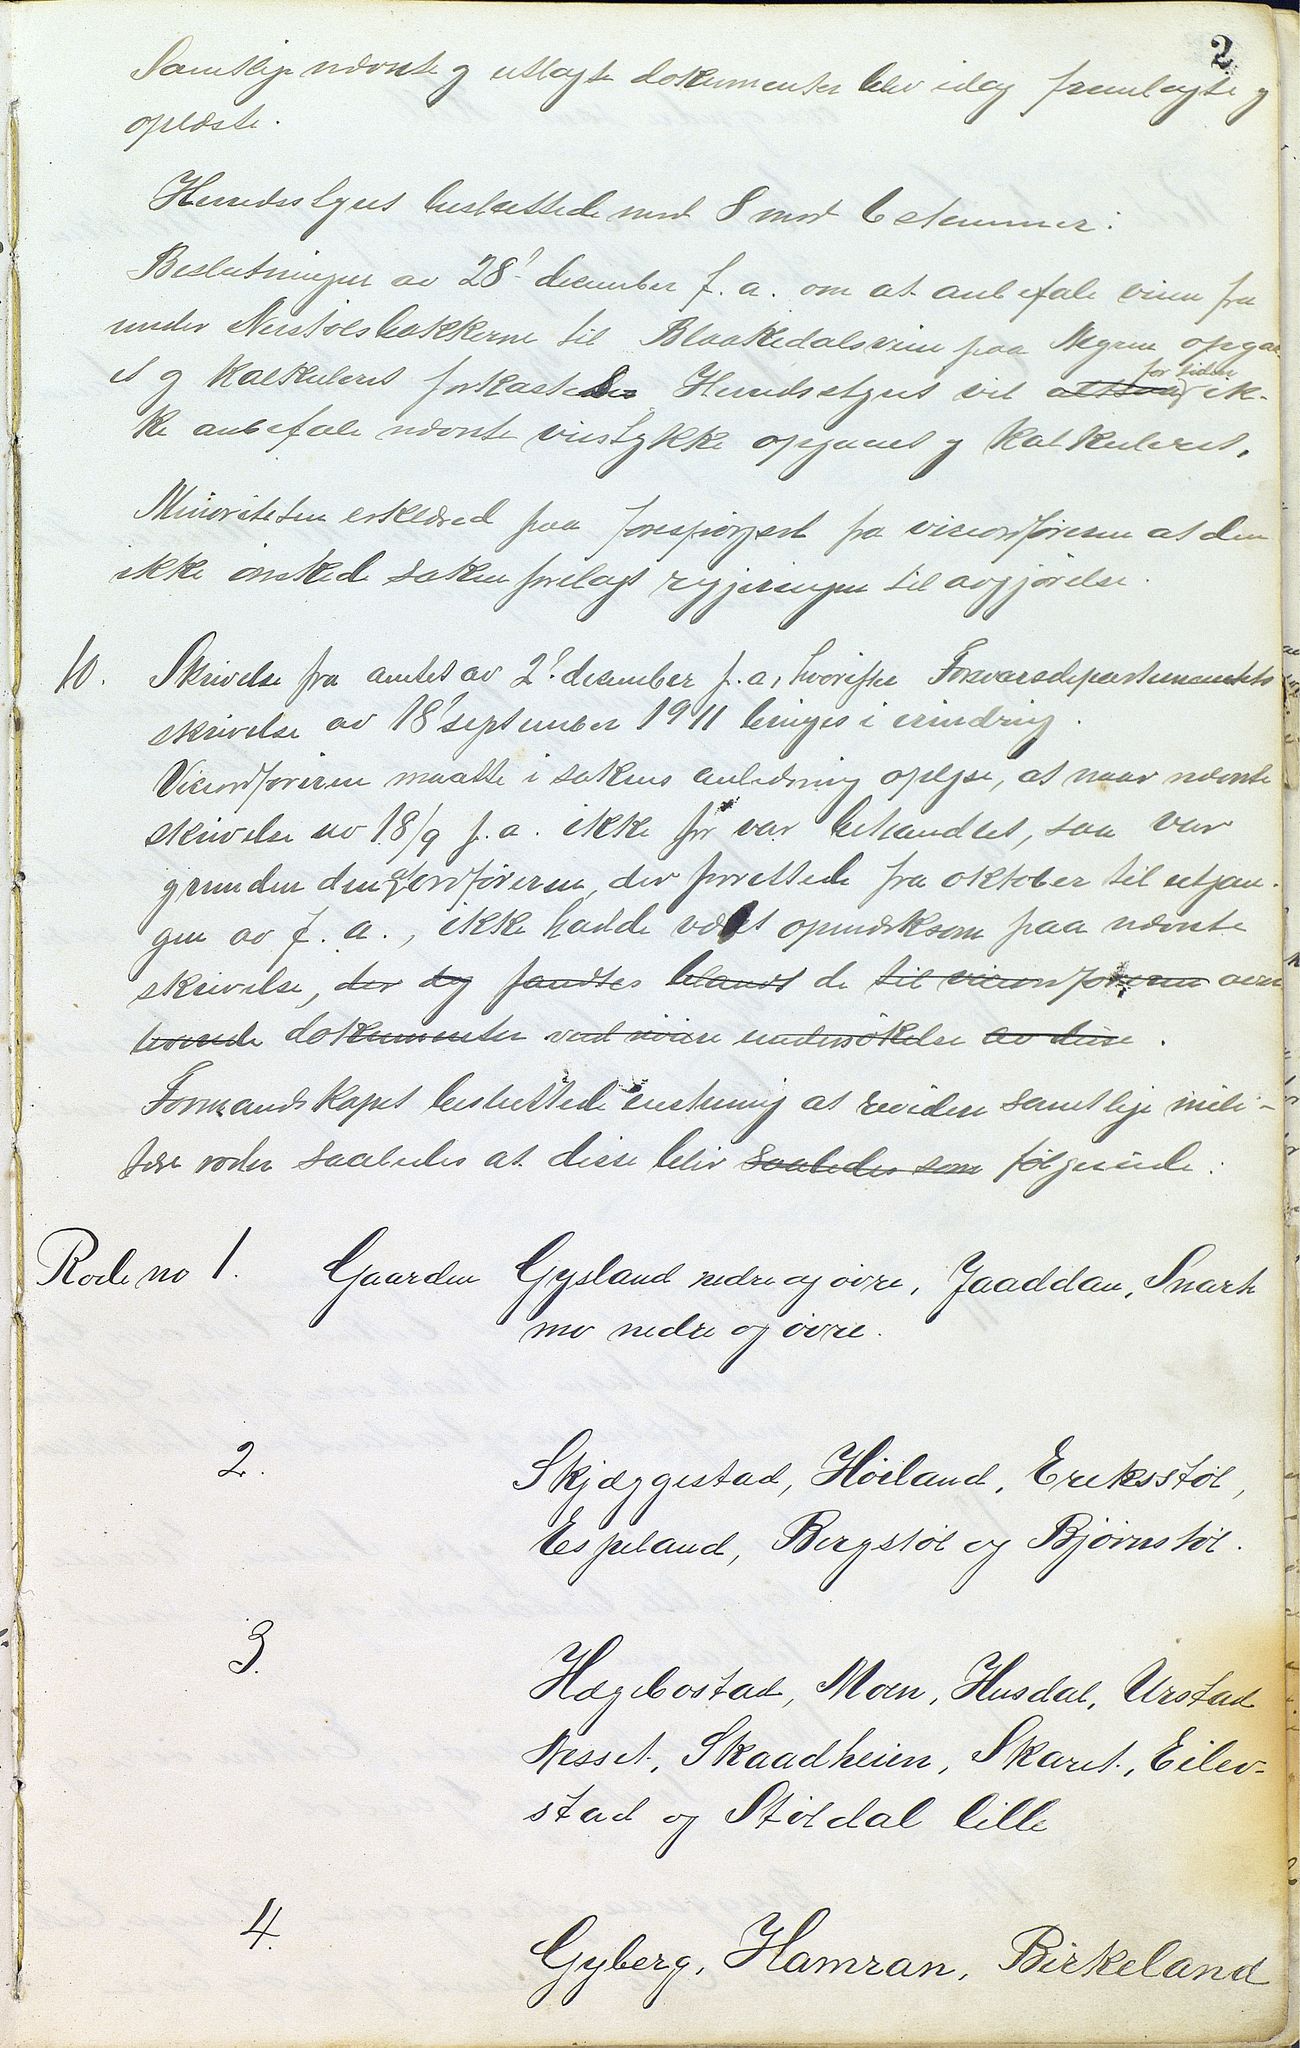 2
Samtlige nævnte og utlagte dokumenter blev idag fremlagte og
oplæste.
Herredsstyret besluttede med 8 mod 6 stemmer:
Beslutningen av 28' december f. a. om at anbefale veien fra
under Neistølsbakkerne til Blaakedalsveien paa Mygren opgaa-
et og kalkuleret forkastes. Herredsstyret vil altsaa for tiden ik-
ke anbefale nævnte veistykke opgaaet og kalkuleret.
Minoriteten erklæred paa forespørgsel fra viceordføreren at den
ikke ønsked saken forelagt regjeringen til avgjørelse.
10. Skrivelse fra amtet av 2' december f. a., hvorefter Forsvarsdepartementets
skrivelse av 18' september 1911 bringes i erindring.
Viceordføreren maatte i sakens anledning oplyse, at naar nævnte
skrivelse av 18/9 f. a. ikke før var behandlet, saa var
grunden den at ordføreren, der forrettede fra oktober til utgan-
gen av f. a., ikke hadde været opmerksom paa nævnte
skrivelse, der dog fandtes blandt de til viceordføreren over
leverede dokumenter ved nøiere undersøkelse av disse.
Formandskapet besluttede enstemmig at revidere samtlige mili-
tære roder saaledes at disse blir saaledes som følgende:
Rode no 1. Gaarden Gysland nedre og øvre, Jaaddan, Snart
mo nedre og øvre.
2. Skjæggestad, Høiland, Eriksstøl,
Espeland, Bergstøl og Bjørnstøl.
3. Hægebostad, Moen, Husdal, Urstad
Nesset, Skaadheien, Skaret, Eilev-
stad og Støldal lille
4. Gyberg, Hamran, Birkeland